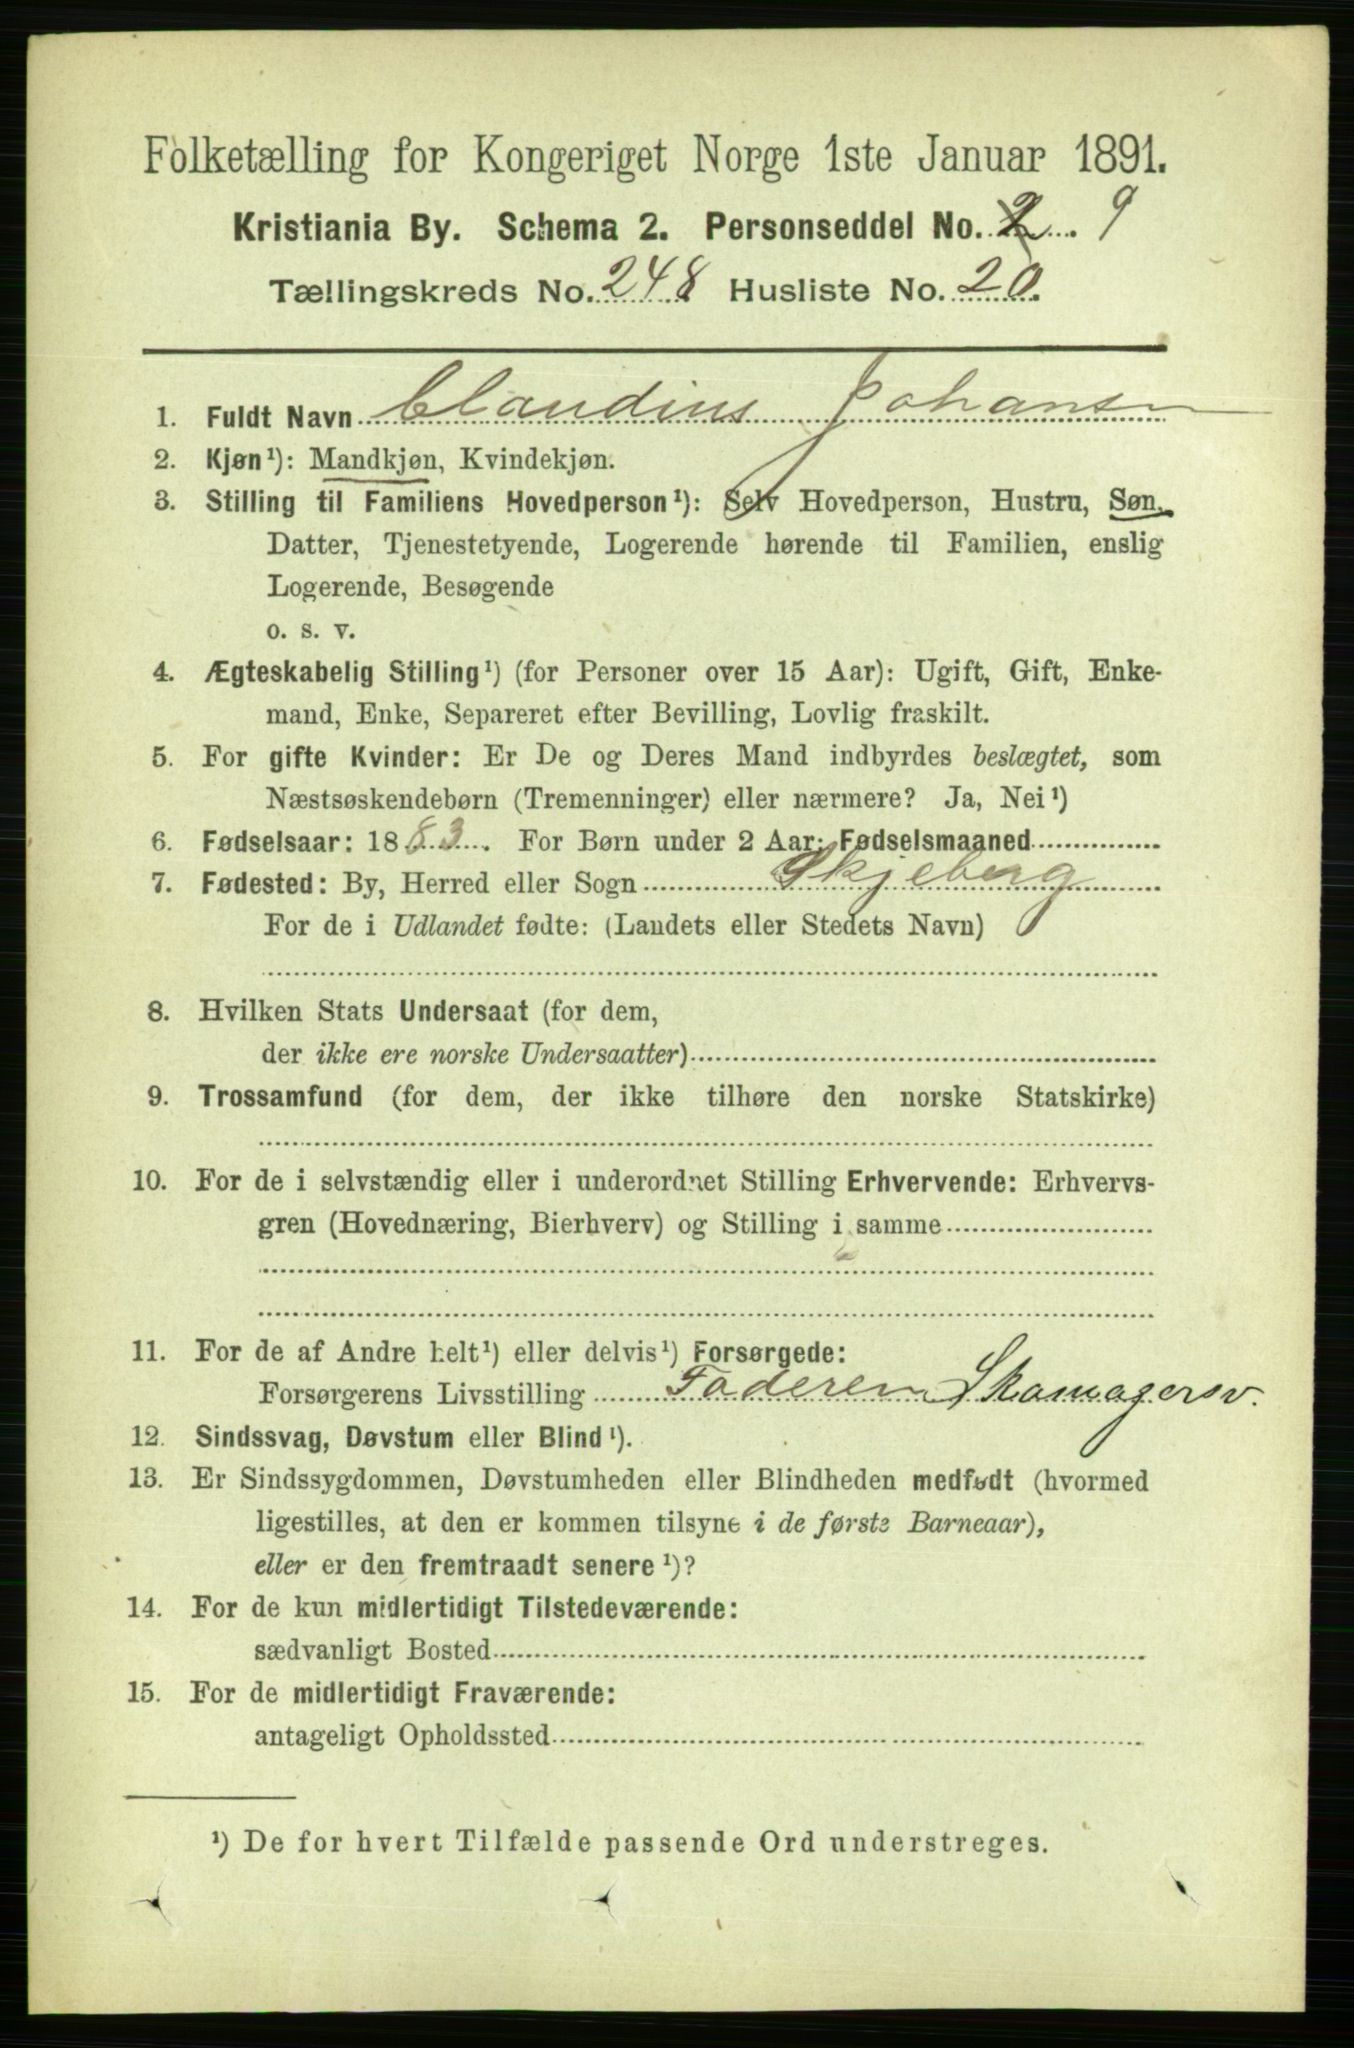 Folketælling for Kongeriget Norge 1ste Januar 1891.
Kristiania By. Schema 2. Personseddel No. 2. 9
Tællingskreds No. 248 Husliste No. 20.
1. Fuldt Navn Claudius Johansen
2. Kjøn¹): Mandkjøn, Kvindekjøn.
3. Stilling til Familiens Hovedperson¹): Selv Hovedperson, Hustru, Søn,
Datter, Tjenestetyende, Logerende hørende til Familien, enslig
Logerende, Besøgende
o. s. v.
4. Ægteskabelig Stilling¹) (for Personer over 15 Aar): Ugift, Gift, Enke-
mand, Enke, Separeret efter Bevilling, Lovlig fraskilt.
5. For gifte Kvinder: Er De og Deres Mand indbyrdes beslægtet, som
Næstsøskendebørn (Tremenninger) eller nærmere? Ja, Nei¹)
6. Fødselsaar: 1883. For Børn under 2 Aar: Fødselsmaaned
7. Fødested: By, Herred eller Sogn Skjeberg
For de i Udlandet fødte: (Landets eller Stedets Navn)
8. Hvilken Stats Undersaat (for dem,
der ikke ere norske Undersaatter)
9. Trossamfund (for dem, der ikke tilhøre den norske Statskirke)
10. For de i selvstændig eller i underordnet Stilling Erhvervende: Erhvervs-
gren (Hovednæring, Bierhverv) og Stilling i samme
11. For de af Andre helt¹) eller delvis¹) Forsørgede:
Forsørgerens Livsstilling Faderen Skomagersv.
12. Sindssvag, Døvstum eller Blind¹).
13. Er Sindssygdommen, Døvstumheden eller Blindheden medfødt (hvormed
ligestilles, at den er kommen tilsyne i de første Barneaar),
eller er den fremtraadt senere¹)?
14. For de kun midlertidigt Tilstedeværende:
sædvanligt Bosted
15. For de midlertidigt Fraværende:
antageligt Opholdssted
¹) De for hvert Tilfælde passende Ord understreges.